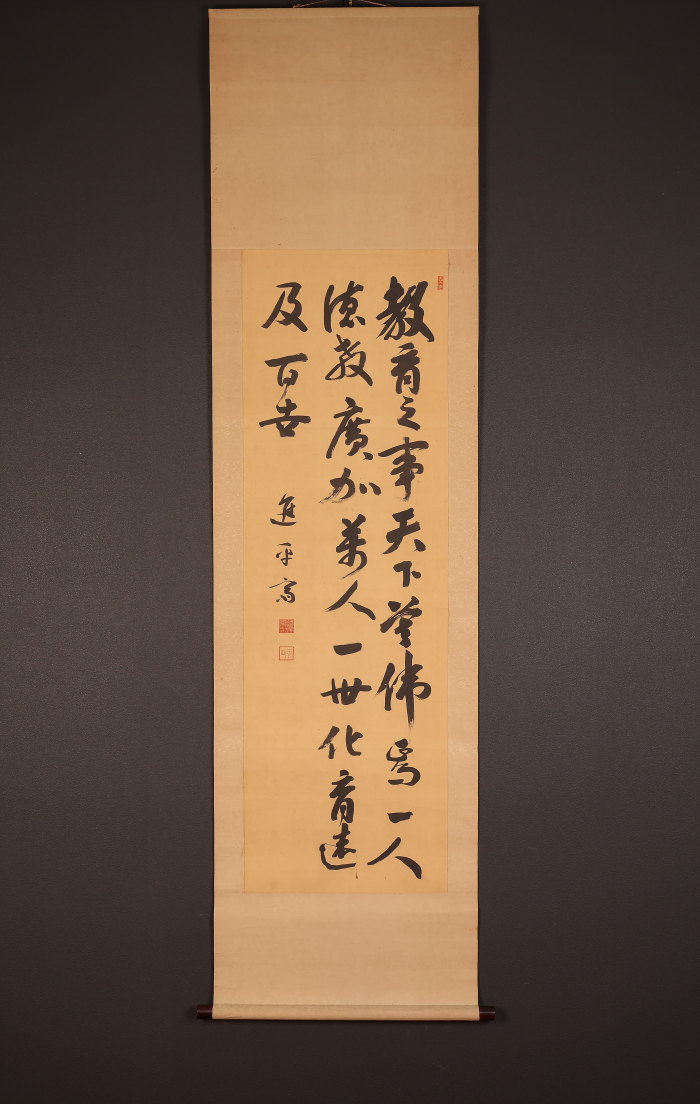 教育之事天下莫偉焉一人
徳教廣加萬人一世化育遠
及百世
進乎斎